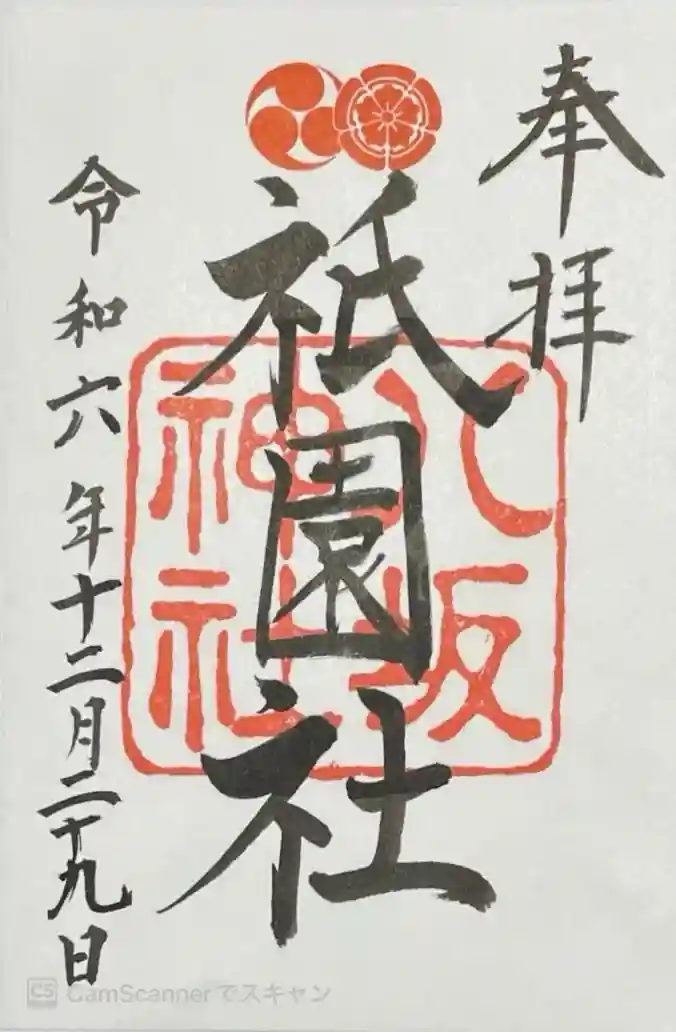 奉拝
祇園社
八坂
神社
令和六年十二月二十九日
CS CamScannerでスキャン